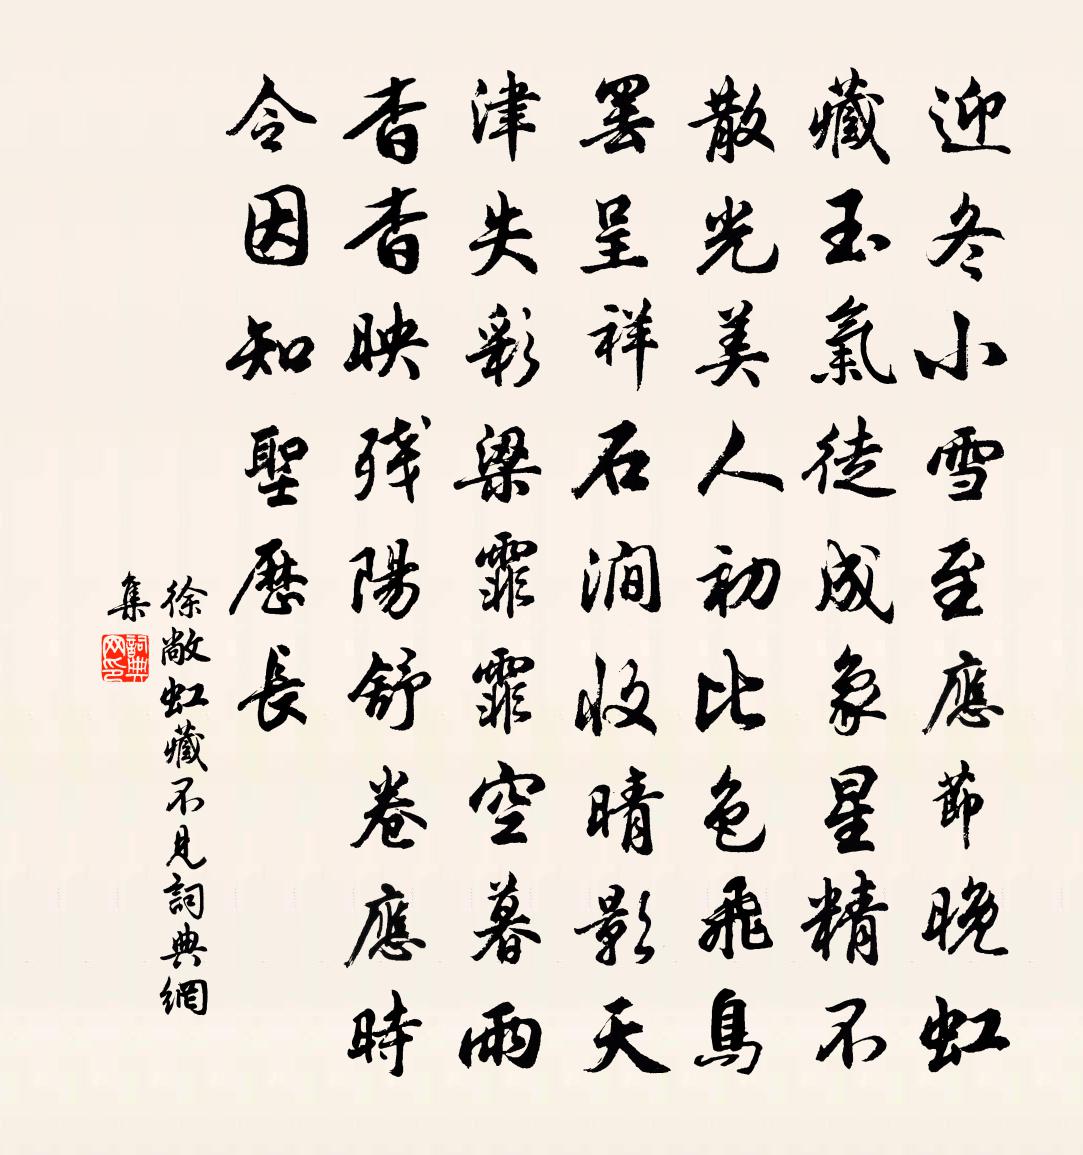 迎冬小雪至應節晚虹
藏玉氣徒成象星精不
散光美人初比色飛鳥
罢呈祥石澗收晴影天
津失彩梁霏霏空暮雨
杳杳映残陽舒卷應時
令因知聖歷長
徐敞虹藏不見詞典網
集
詞典网印